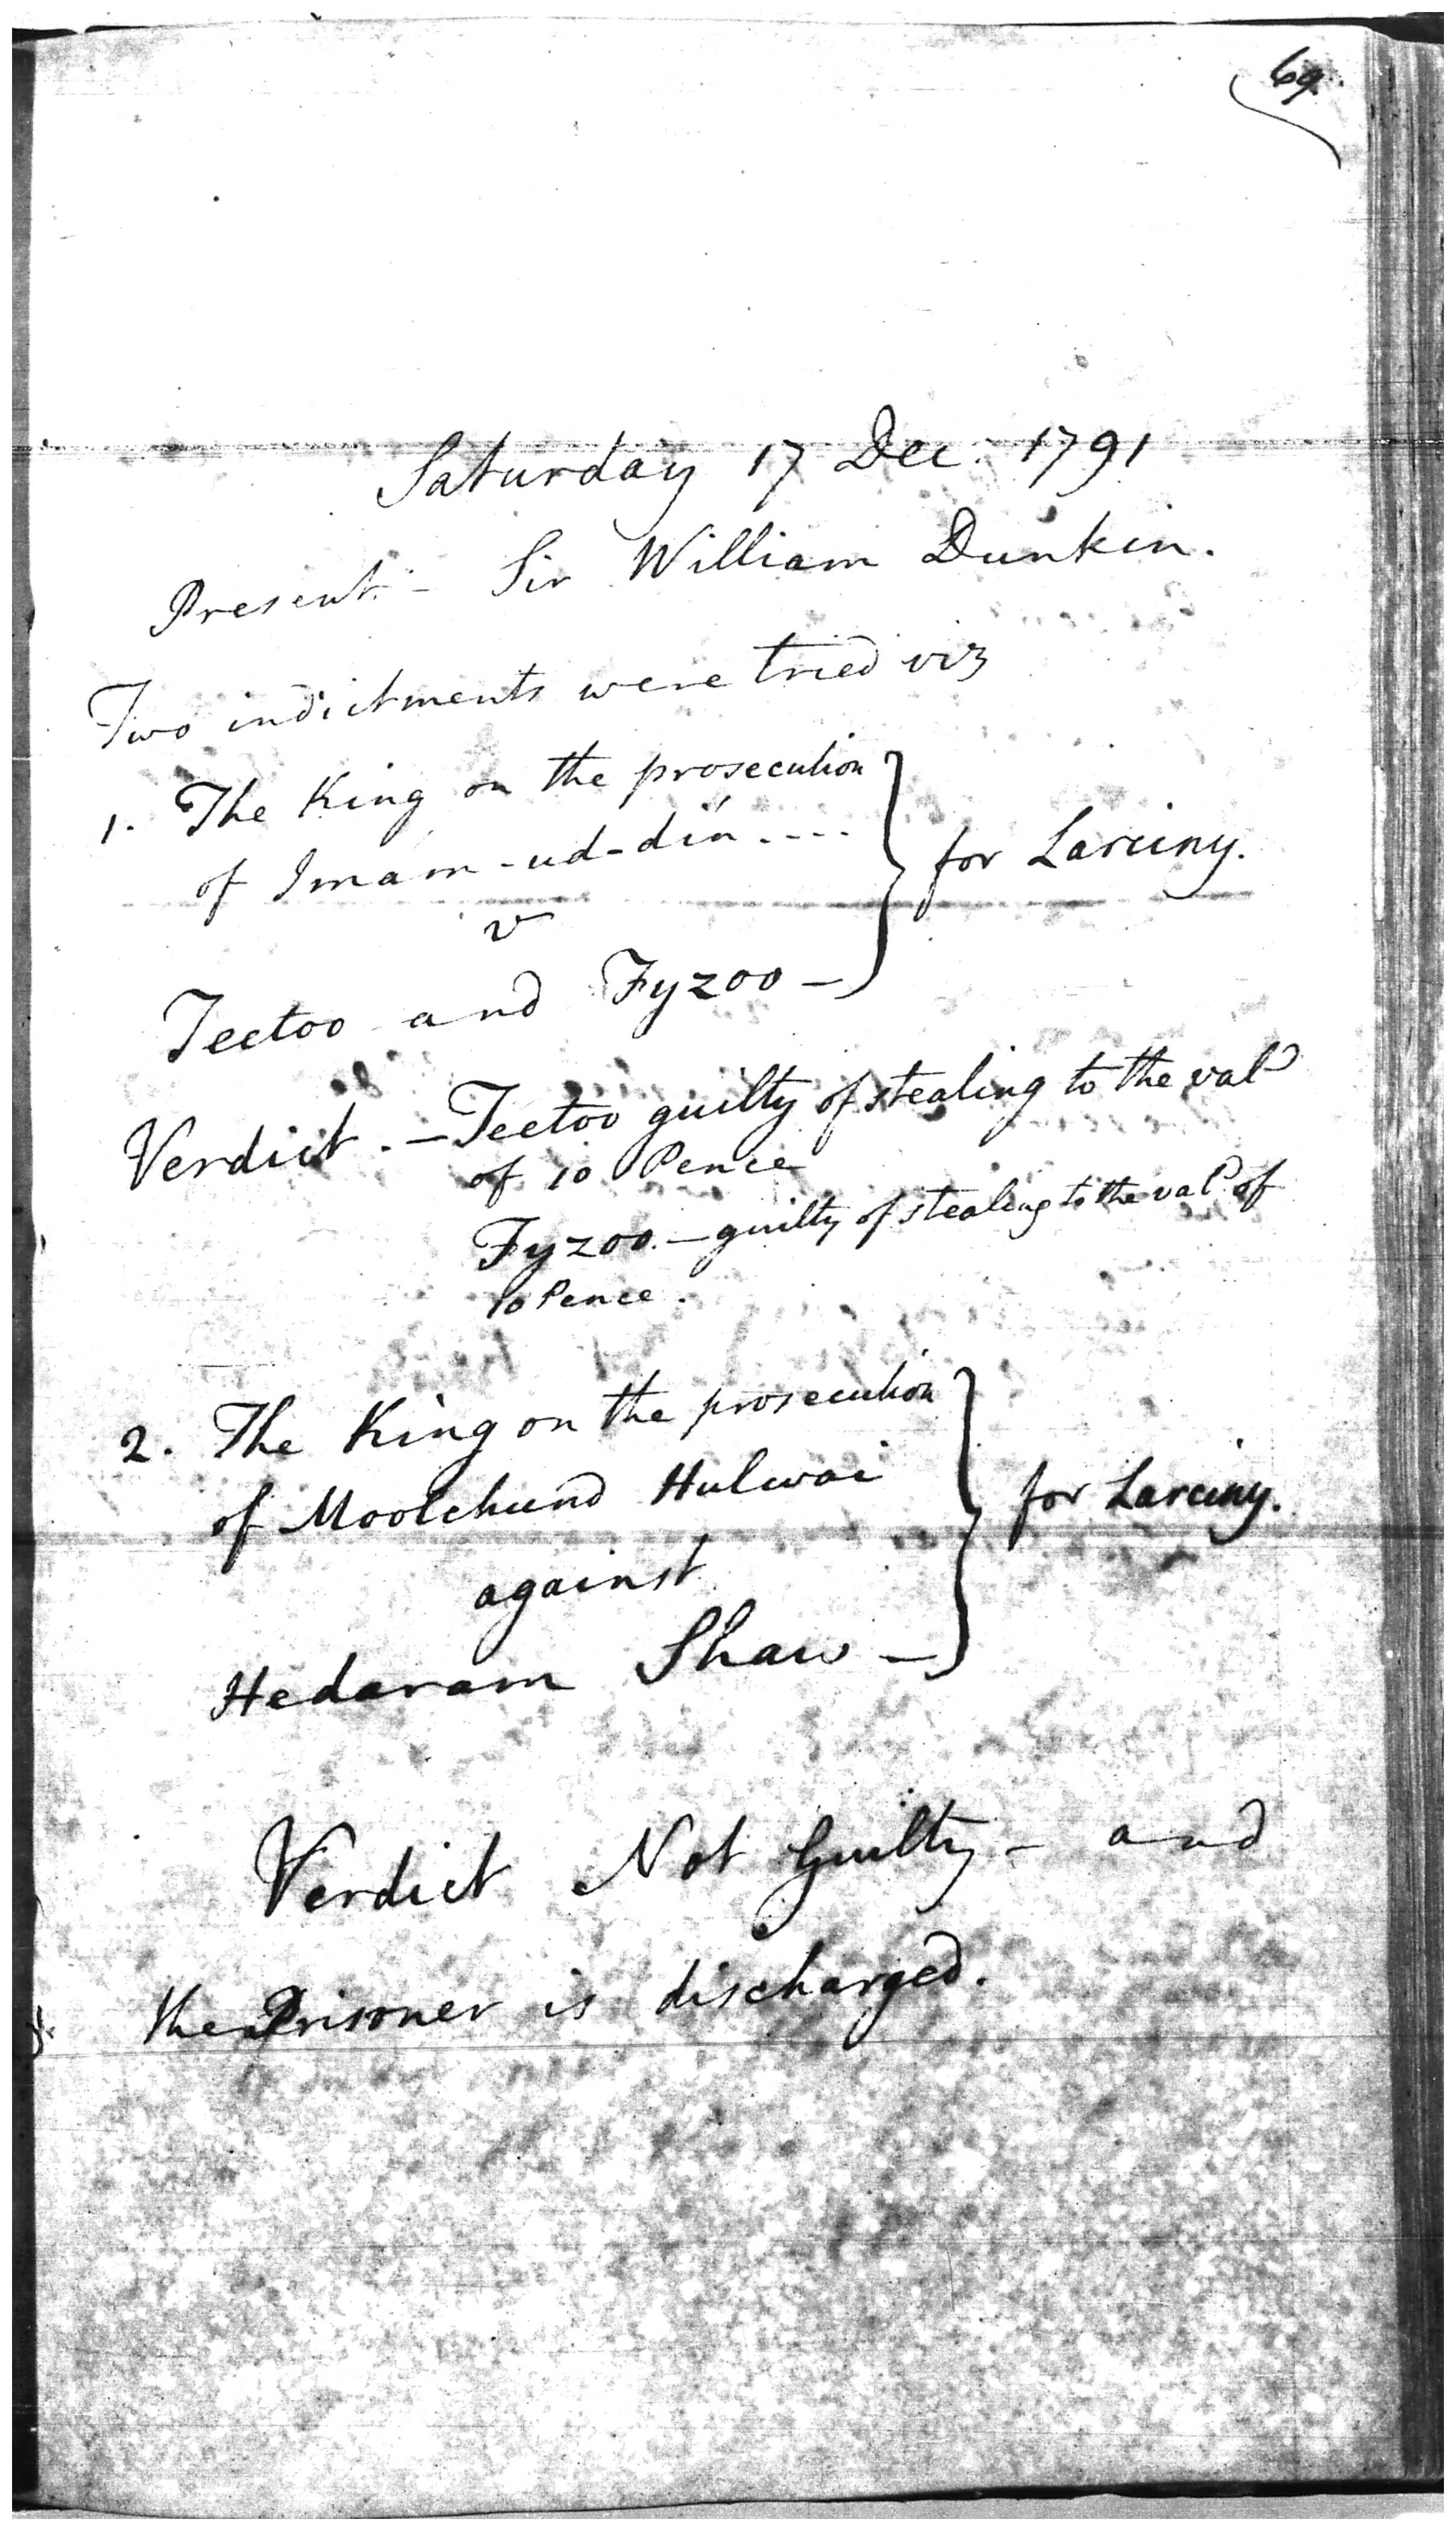 69.
Saturday 17 Dec. 1791
Present. - Sir William Dunkin.
Two indictments were tried viz
1. The King on the prosecution
of Imám-ud-dín ....
for Larciny.
v
Teetoo and Fyzoo —
Verdict. — Teetoo guilty of stealing to the val^e
of 10 Pence
Fyzoo. — guilty of stealing to the val^e of
10 Pence.
2. The King on the prosecution
of Moolchund Hulwai
for Larciny.
against
Hedaram Shaw —
Verdict Not Guilty - and
the Prisoner is discharged.